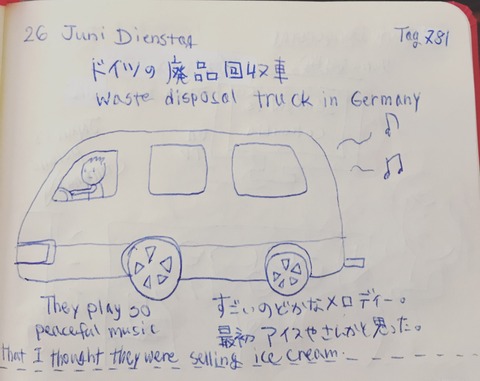 26 Juni Dienstag
Tag 781
ドイツの廃品回収車
waste disposal truck in Germany
They play so
peaceful music
that I thought they were selling ice cream.
すごいのどかなメロディー。
最初アイスやさんかと思った。